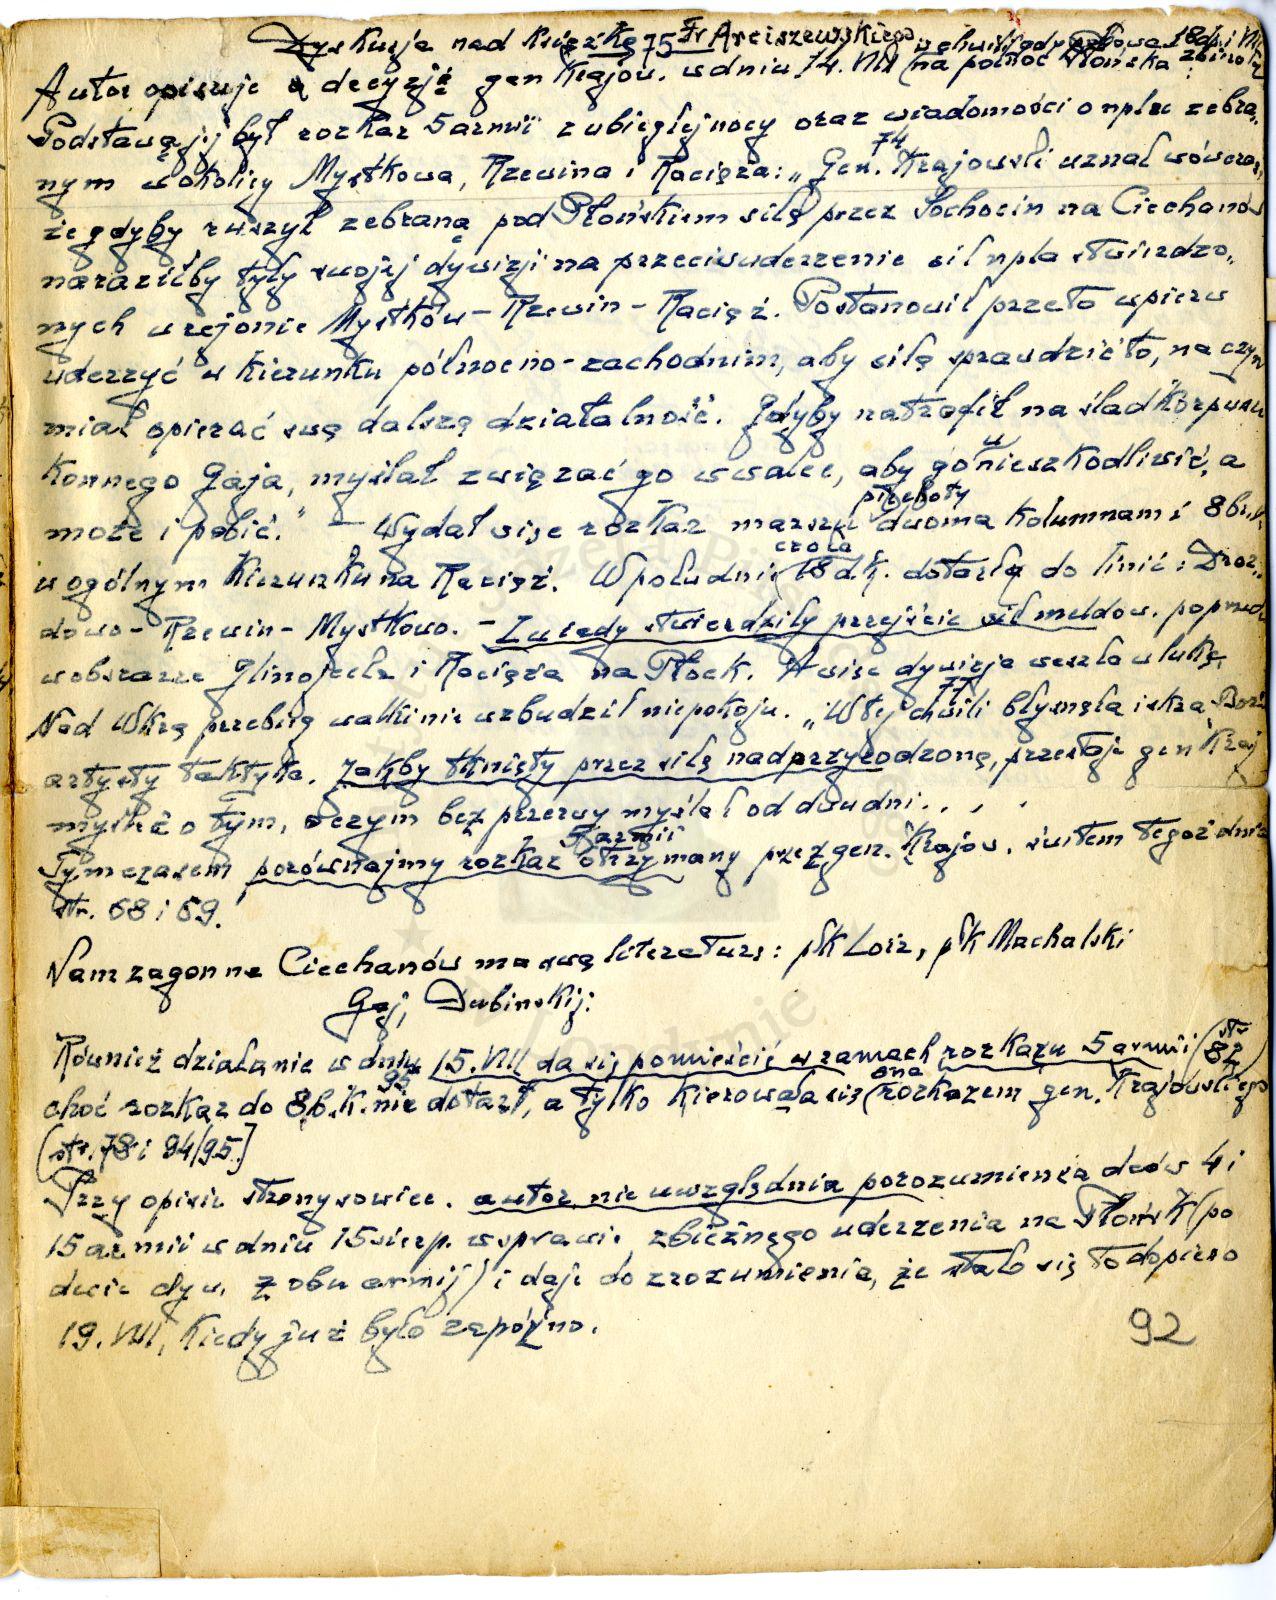 Dyskusja nad książką Fr Arciszewskiego
75 w chwili gdy 18 dp. i
Autor opisuje decyzję gen Krajow. w dniu 14. VIII (na północ Płońska
Podstawą jej był rozkaz 5 armii z ubiegłej nocy oraz wiadomości o nplu zebra„
nym w okolicy Mystkowa, Rzewina i Raciąża: „Gen. Krajowski uznał wówczas,
74
że gdyby ruszył zebraną pod Płońskiem siłą przez Sochocin na Ciechanów
naraziłby tyły swojej dywizji na przeciwuderzenie sił npla stwierdzo„
nych w rejonie Mystków – Rzewin – Raciąż. Postanowił przeto wpierw
uderzyć w kierunku północno-zachodnim, aby siłą sprawdzić to, na czym
miał opierać swą dalszą działalność. Gdyby natrafił na ślad Korpusu
Konnego Gaja, myślał związać go w walce, aby go unieszkodliwić, a
może i pobić." – Wydał więc rozkaz marszu piechoty dwoma kolumnami i 8 b.k.
w ogólnym kierunku na Raciąż. W południe czoła 18 d.p. dotarły do linii: Droz„
dowo – Rzewin – Mystkowo. – Zwiady stwierdziły przejście sił meldow. poprzed.
w obszarze Glinojeck i Raciąża na Płock. A więc dywizja weszła w lukę.
Nad Wkrą przebieg walki nie wzbudził niepokoju. „W tej chwili błysnęła iskra Boża
77
artysty taktyka. Jakby tknięty przez siłę nadprzyrodzoną, przestaje gen Kraj
myśleć o tym, o czym bez przerwy myślał od dwu dni. . . .
Tymczasem porównajmy rozkaz 5 armii otrzymany przez gen. Krajow. świtem tegoż dnia
str. 68 i 69.
Sam zagon na Ciechanów ma swą literaturę: płk Loir, płk Machalski
Gaj, Dubinskij:
Również działanie w dniu 15. VIII da się pomieścić w ramach rozkazu 5 armii (str 82)
choć rozkaz do 8 b.K. nie dotarł, a tylko kierowała się ona rozkazem gen. Krajowskiego
95
(str. 78 i 94/95.)
Przy opisie strony sowiec. autor nie uwzględnia porozumienia dców 4 i
15 armii w dniu 15 sierp. w sprawie zbieżnego uderzenia na Płońsk (po
dwie dyw. z obu armij) i daje do zrozumienia, że stało się to dopiero
19. VIII, kiedy już było zapóźno.
92